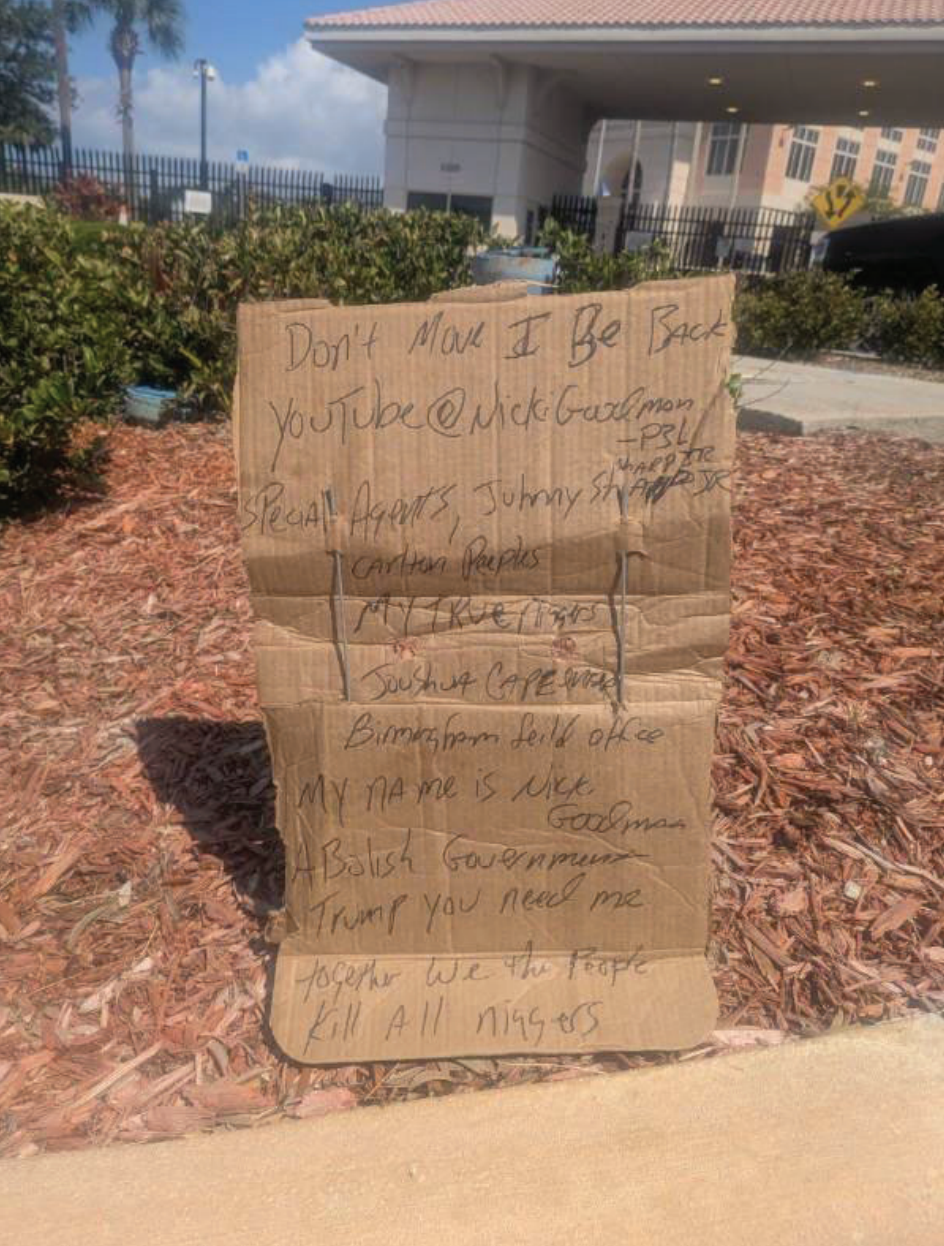 Don't Move I Be Back
YouTube@NickiGoodmon
-P3L
SHARP JR
Special Agents, Johnny SHARP JR
carlton Peeples
MY TRUE
Joushua
Birmingham feild office
MY NAME is Nick
Goodman
ABolish Government
Trump you need me
together We the People
Kill All niggers